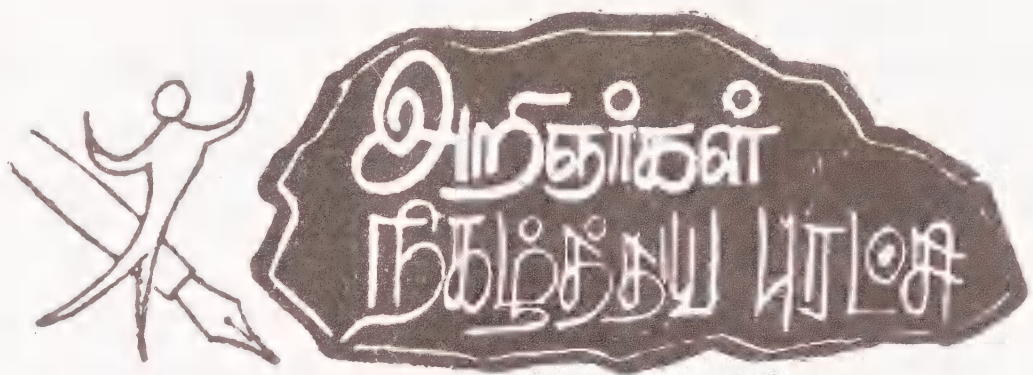 அறிஞர்கள்
நிகழ்த்திய புரட்சி